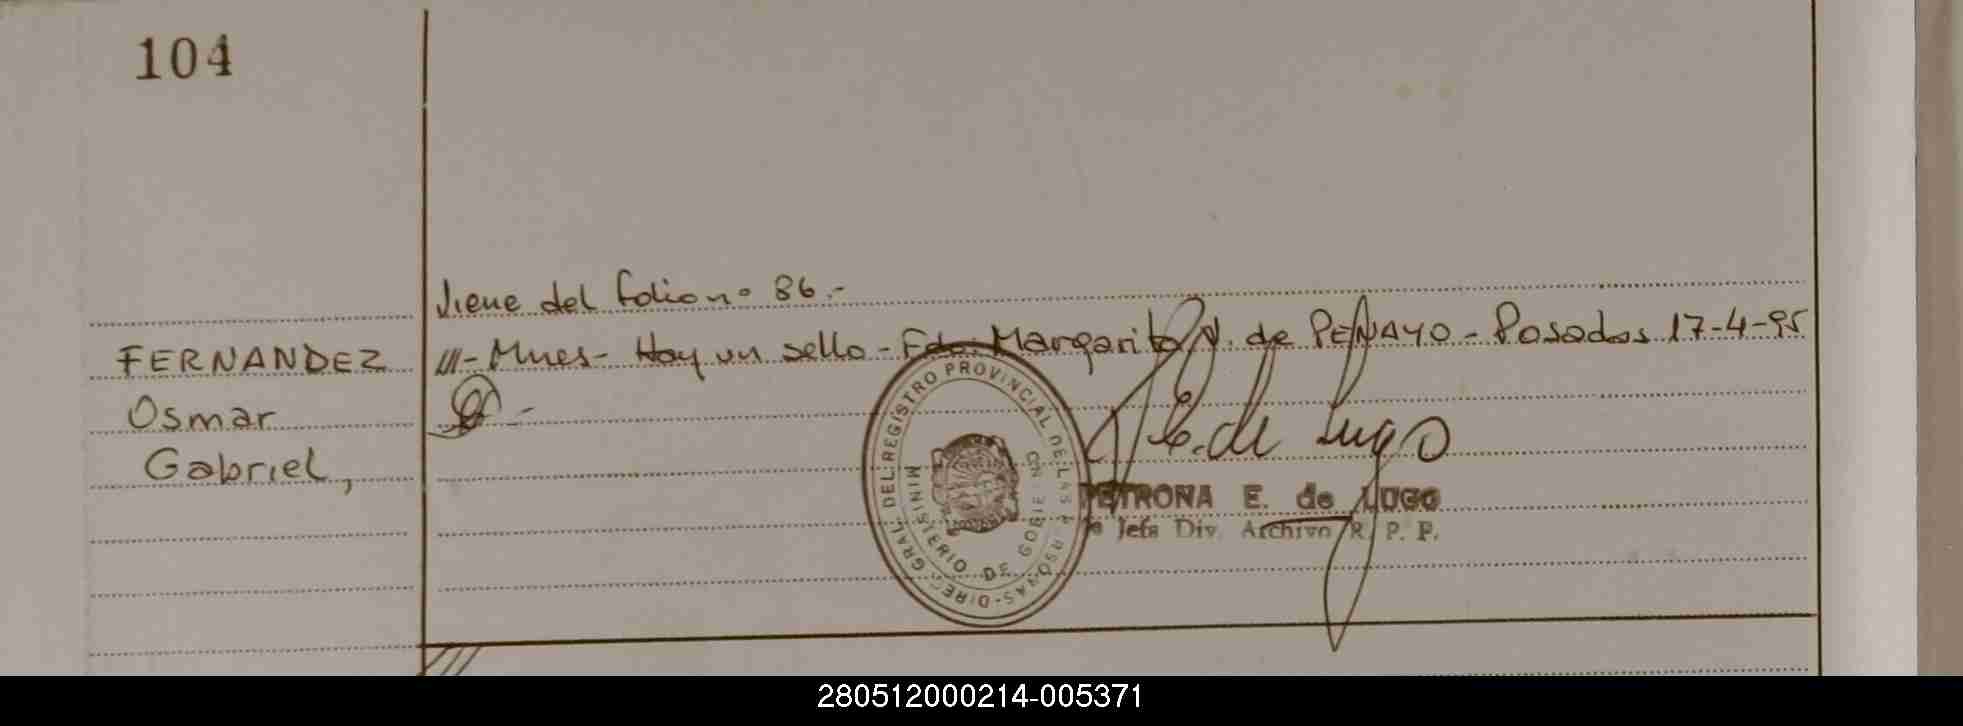 104
Viene del folio nº 86.-
FERNANDEZ
Osmar
Gabriel,
III- Mnes- Hay un sello - Fdo. Margarita N. de PENAYO - Posadas 17-4-95
E. de Lugo
DIREC. GRAL DEL REGISTRO PROVINCIAL DE LAS PERSONAS
MINISTERIO DE GOBIE
PETRONA E. de LUGO
Jefa Div. Archivo R. P. P.
280512000214-005371